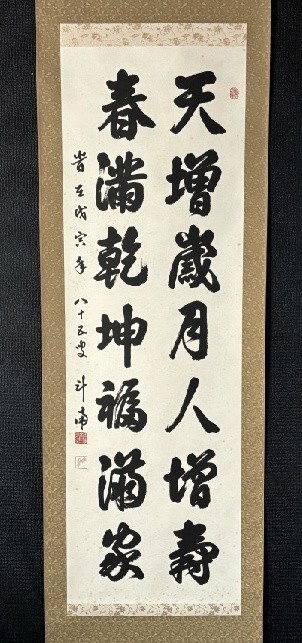 天增歲月人增壽
春滿乾坤福滿家
時在戊寅年 八十五叟 斗南